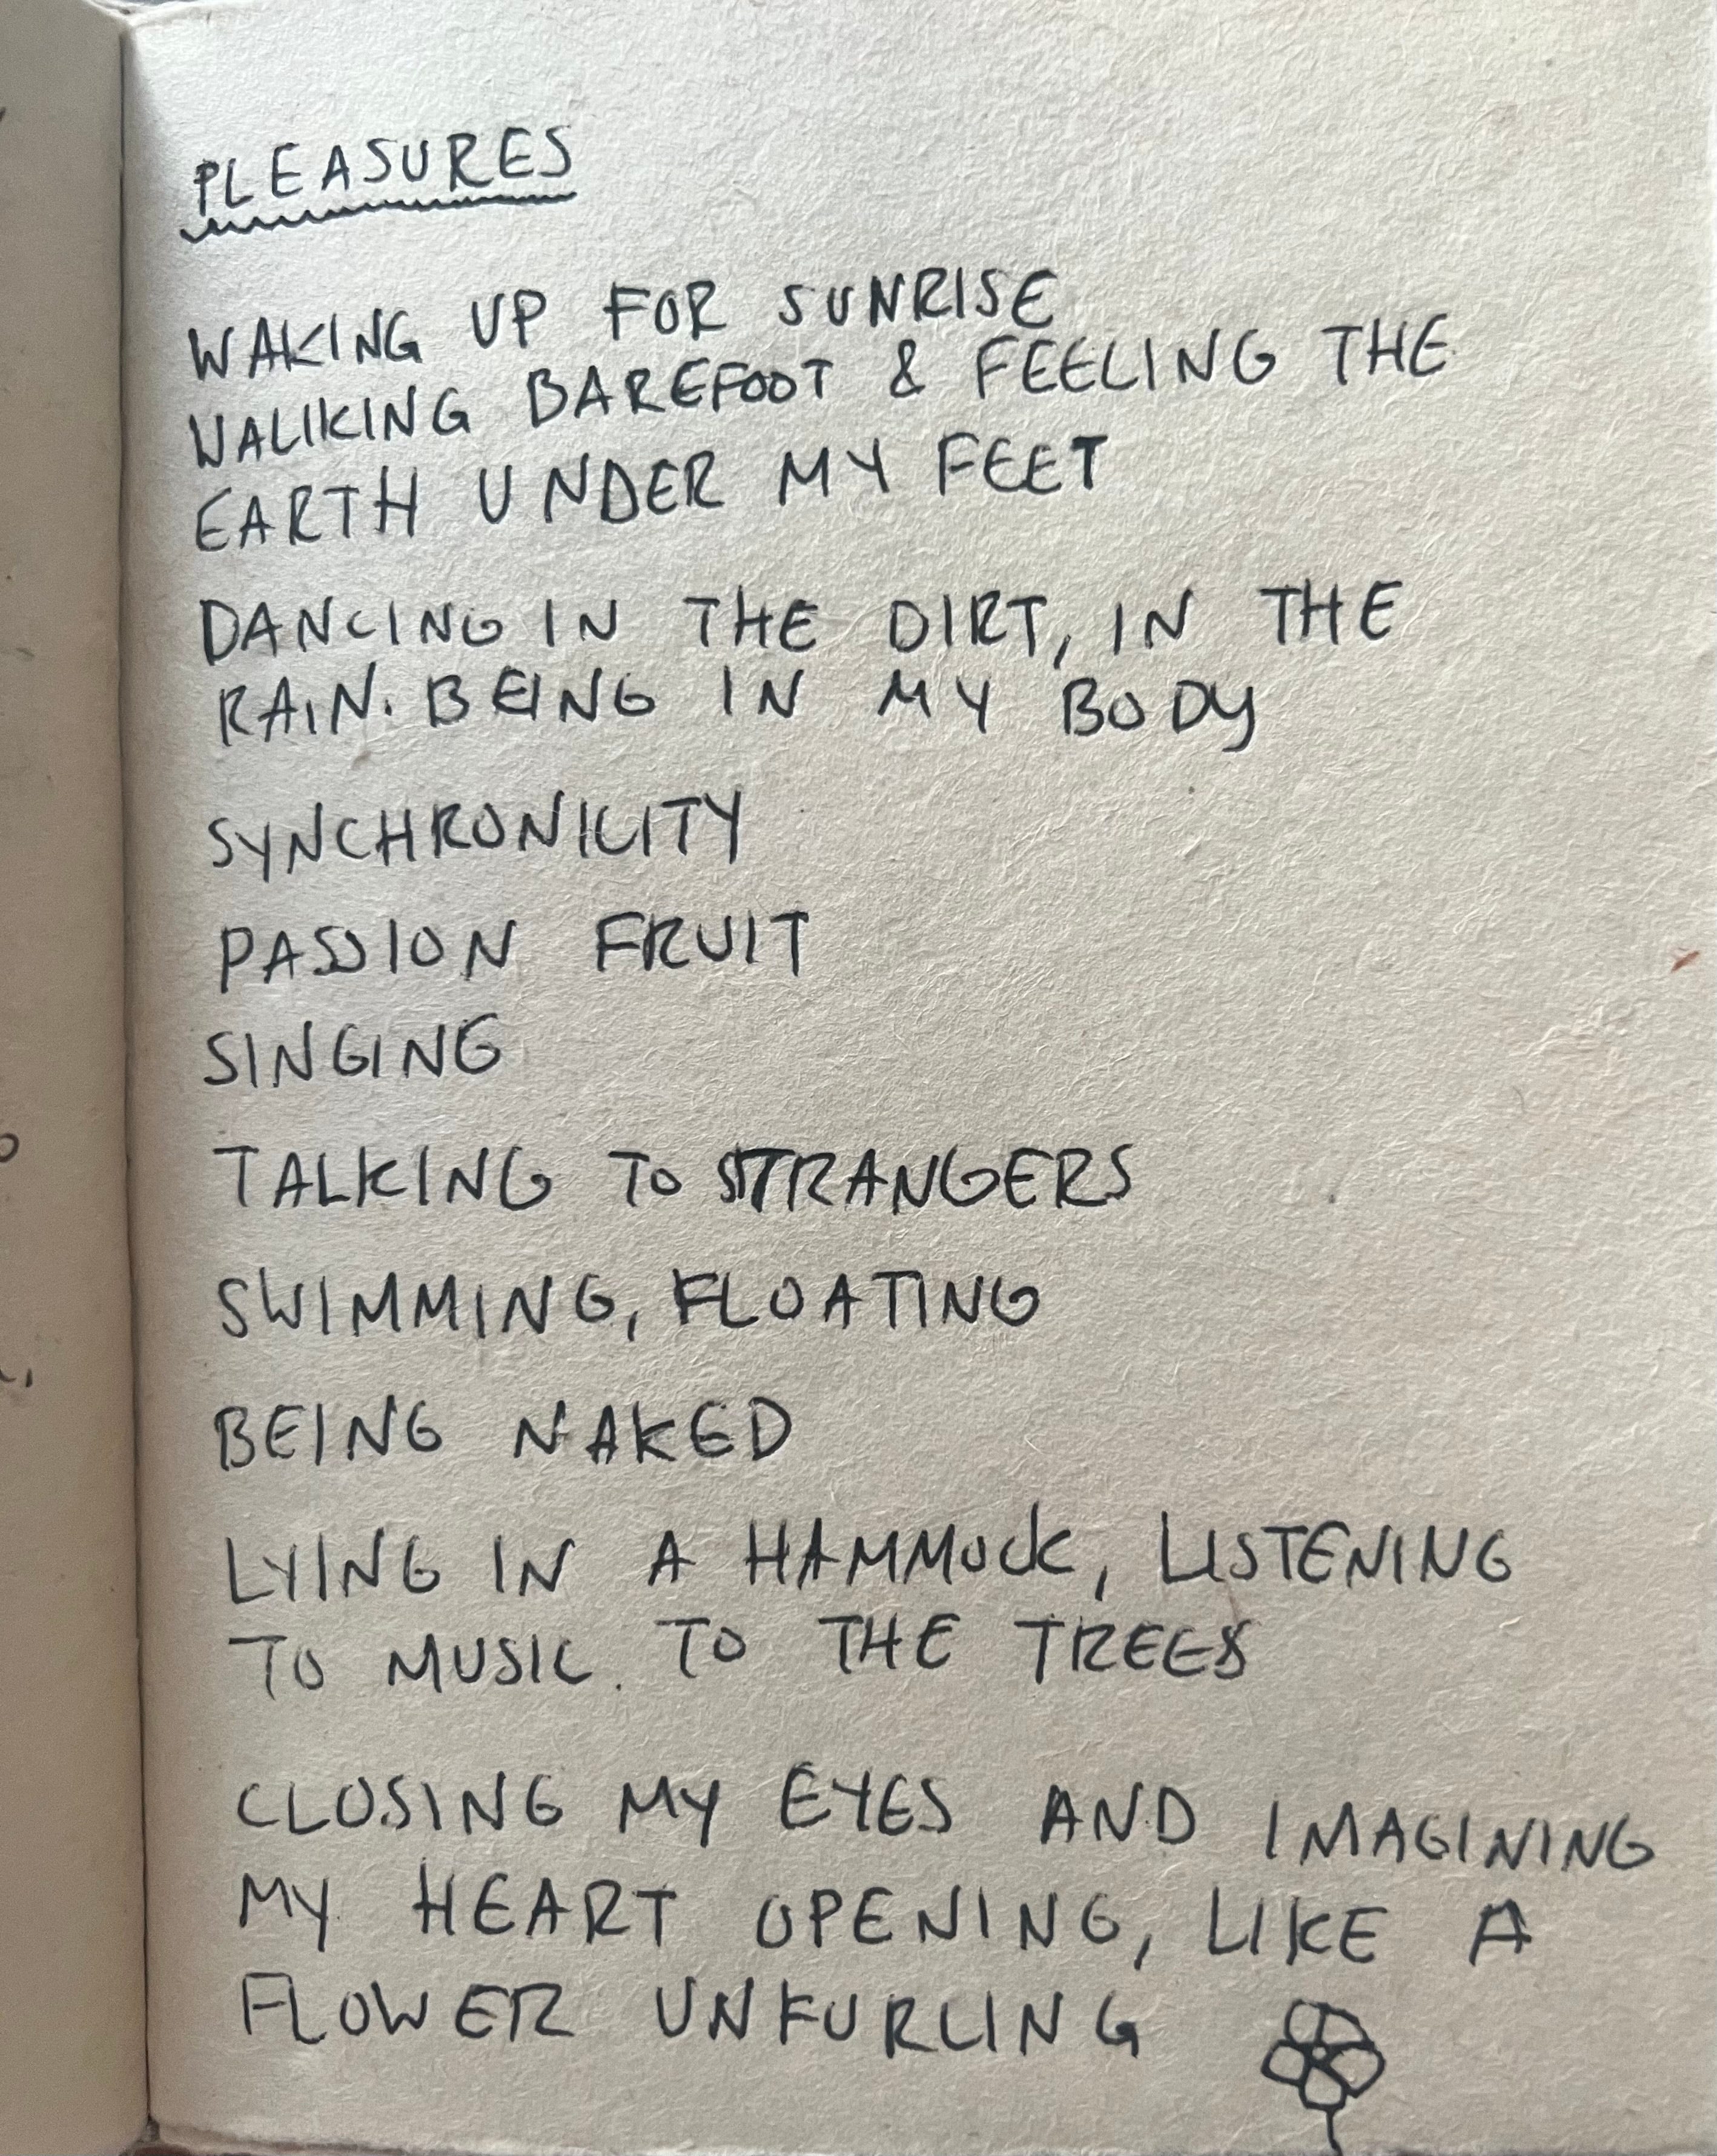 PLEASURES
WAKING UP FOR SUNRISE
WALKING BAREFOOT & FEELING THE
EARTH UNDER MY FEET
DANCING IN THE DIRT, IN THE
RAIN. BEING IN MY BODY
SYNCHRONICITY
PASSION FRUIT
SINGING
TALKING TO STRANGERS
SWIMMING, FLOATING
BEING NAKED
LYING IN A HAMMOCK, LISTENING
TO MUSIC. TO THE TREES
CLOSING MY EYES AND IMAGINING
MY HEART OPENING, LIKE A
FLOWER UNFURLING